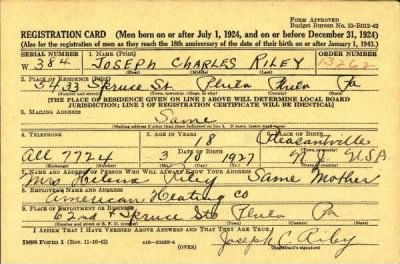 FORM APPROVED
Budget Bureau No. 33-R012-42
REGISTRATION CARD (Men born on or after July 1, 1924, and on or before December 31, 1924)
(Also for the registration of men as they reach the 18th anniversary of the date of their birth on or after January 1, 1943.)
SERIAL NUMBER 1. NAME (Print) ORDER NUMBER
W 384 JOSEPH CHARLES RILEY 13262
(First) (Middle) (Last)
2. PLACE OF RESIDENCE (Print)
5433 Spruce St. Phila Phila Pa
(Number and street) (Town, township, village, or city) (County) (State)
[THE PLACE OF RESIDENCE GIVEN ON LINE 2 ABOVE WILL DETERMINE LOCAL BOARD
JURISDICTION; LINE 2 OF REGISTRATION CERTIFICATE WILL BE IDENTICAL]
3. MAILING ADDRESS
Same
[Mailing address if other than place indicated on line 2. If same, insert word same]
4. TELEPHONE 5. AGE IN YEARS 6. PLACE OF BIRTH
18 Pleasantville
DATE OF BIRTH
All 7724 3 1927 N.J. U.S.A.
7. NAME AND ADDRESS OF PERSON WHO WILL ALWAYS KNOW YOUR ADDRESS
Mrs Helena Riley Same Mother
8. EMPLOYER'S NAME AND ADDRESS
American Heating Co
9. PLACE OF EMPLOYMENT OR BUSINESS
62nd + Spruce Sts Phila Pa
(Number and street or R. F. D. number) (Town) (County) (State)
I AFFIRM THAT I HAVE VERIFIED ABOVE ANSWERS AND THAT THEY ARE TRUE.
DSS Form 1 (Rev. 11-16-42) (OVER) Joseph C. Riley